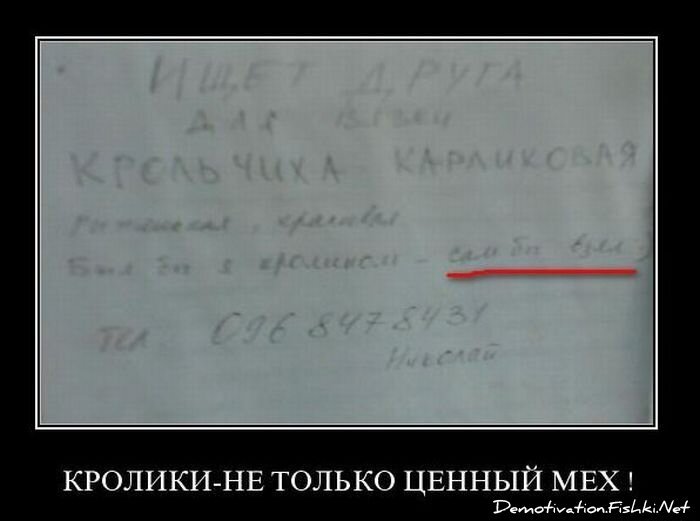 ИЩЕТ ДРУГА
ДЛЯ
КРОЛЬЧИХА КАРЛИКОВАЯ
красивая
Был бы я кроликом - сам бы взял :)
тел. 096 8478431
Николай
КРОЛИКИ-НЕ ТОЛЬКО ЦЕННЫЙ МЕХ !
Demotivation.Fishki.Net